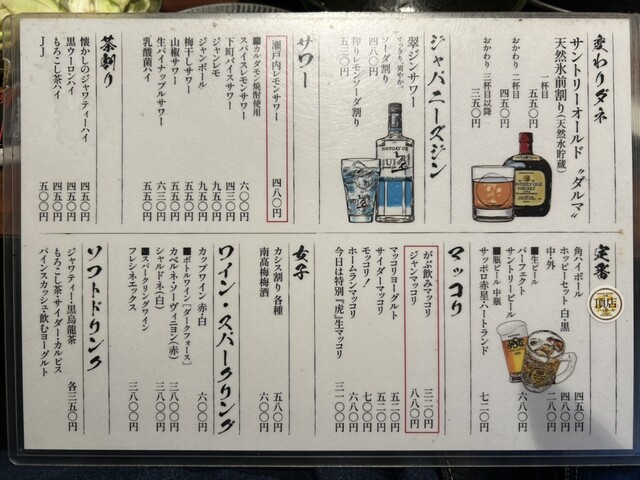 変わりダネ
サントリーオールド “ダルマ”
天然水前割り(天然水貯蔵)
一杯目 五五〇円
おかわり 二杯目 四五〇円
おかわり 三杯目以降 三五〇円
ジャパニーズジン
翠ジンサワー
ソーダ割り 四八〇円
搾りレモンソーダ割り 五三〇円
サワー
瀬戸内レモンサワー 四八〇円
■カルダモン焼酎使用
スパイスレモンサワー 六〇〇円
下町バイスサワー 四三〇円
ジャンレモ 九五〇円
ジャンボール 九五〇円
梅干しサワー 五五〇円
山椒サワー 五五〇円
生パイナップルサワー 六三〇円
乳酸菌ハイ 五五〇円
茶割り
懐かしのジャワティーハイ 四五〇円
黒ウーロンハイ 四五〇円
もろこし茶ハイ 四五〇円
JJ 五〇〇円
定番
角ハイボール 四五〇円
ホッピーセット 白・黒 四八〇円
中・外 二八〇円
■生ビール
パーフェクト
サントリービール 六八〇円
■瓶ビール 中瓶
サッポロ赤星・ハートランド 七二〇円
頂店
マッコリ
がぶ飲みマッコリ 三二〇円
ジャンマッコリ 八八〇円
マッコリヨーグルト 五二〇円
サイダーマッコリ 五二〇円
モッコリ! 七〇〇円
ホームランマッコリ 六八〇円
今日は特別『虎』生マッコリ 三一〇〇円
女子
カシス割り 各種 五八〇円
南高梅梅酒 六〇〇円
ワイン・スパークリング
カップワイン 赤・白 六〇〇円
■ボトルワイン[ダークフォース]
カベルネ・ソーヴィニヨン(赤) 三八〇〇円
シャルドネ(白) 三八〇〇円
■スパークリングワイン
フレシネエックス 三八〇〇円
ソフトドリンク
ジャワティー・黒烏龍茶
もろこし茶・サイダー・カルピス
パインスカッシュ・飲むヨーグルト
各三五〇円